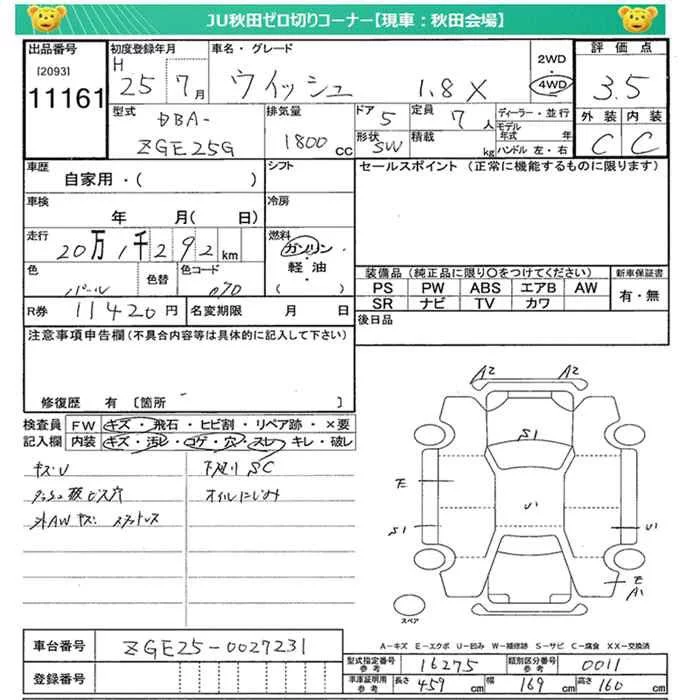 JU秋田ゼロ切りコーナー【現車：秋田会場】
出品番号 初度登録年月 車名・グレード 評価点
[2093] H 2WD
11161 25 7月 ウイッシュ 1.8X 4WD 3.5
型式 排気量 ドア 定員 ディーラー・並行 外装 内装
DBA- 5 7人 モデル年式 年
ZGE25G 1800cc 形状 SW 積載 kg ハンドル 左・右 C C
車歴 シフト セールスポイント (正常に機能するものに限ります)
自家用・( )
車検 冷房
年 月( 日)
走行 燃料
20万1千292km ガソリン・
色 色替 色コード 軽油
パール 070 ( )
装備品 (純正品に限り○をつけてください) 新車保証書
PS PW ABS エアB AW 有・無
SR ナビ TV カワ
R券 11420円 名変期限 月 日 後日品
注意事項申告欄(不具合内容等は具体的に記入して下さい)
修復歴 有 [箇所 ]
検査員 FW キズ・飛石・ヒビ割・リペア跡・×要
記入欄 内装 キズ・汚レ・コゲ・穴・スレ・キレ・破レ
キズU 下廻り SC
ダッシュ板ビス穴 オイルにじみ
外AWキズ スタットレス
A2 A2
S1
E
U1
S1 U1
E
A1
スペア
A-キズ E-エクボ U-凹み W-補修跡 S-サビ C-腐食 XX-交換済
車台番号 ZGE25-0027231
型式指定番号 参考 16275 類別区分番号 参考 0011
登録番号
車庫証明用 参考 長さ 459cm 幅 169cm 高さ 160cm